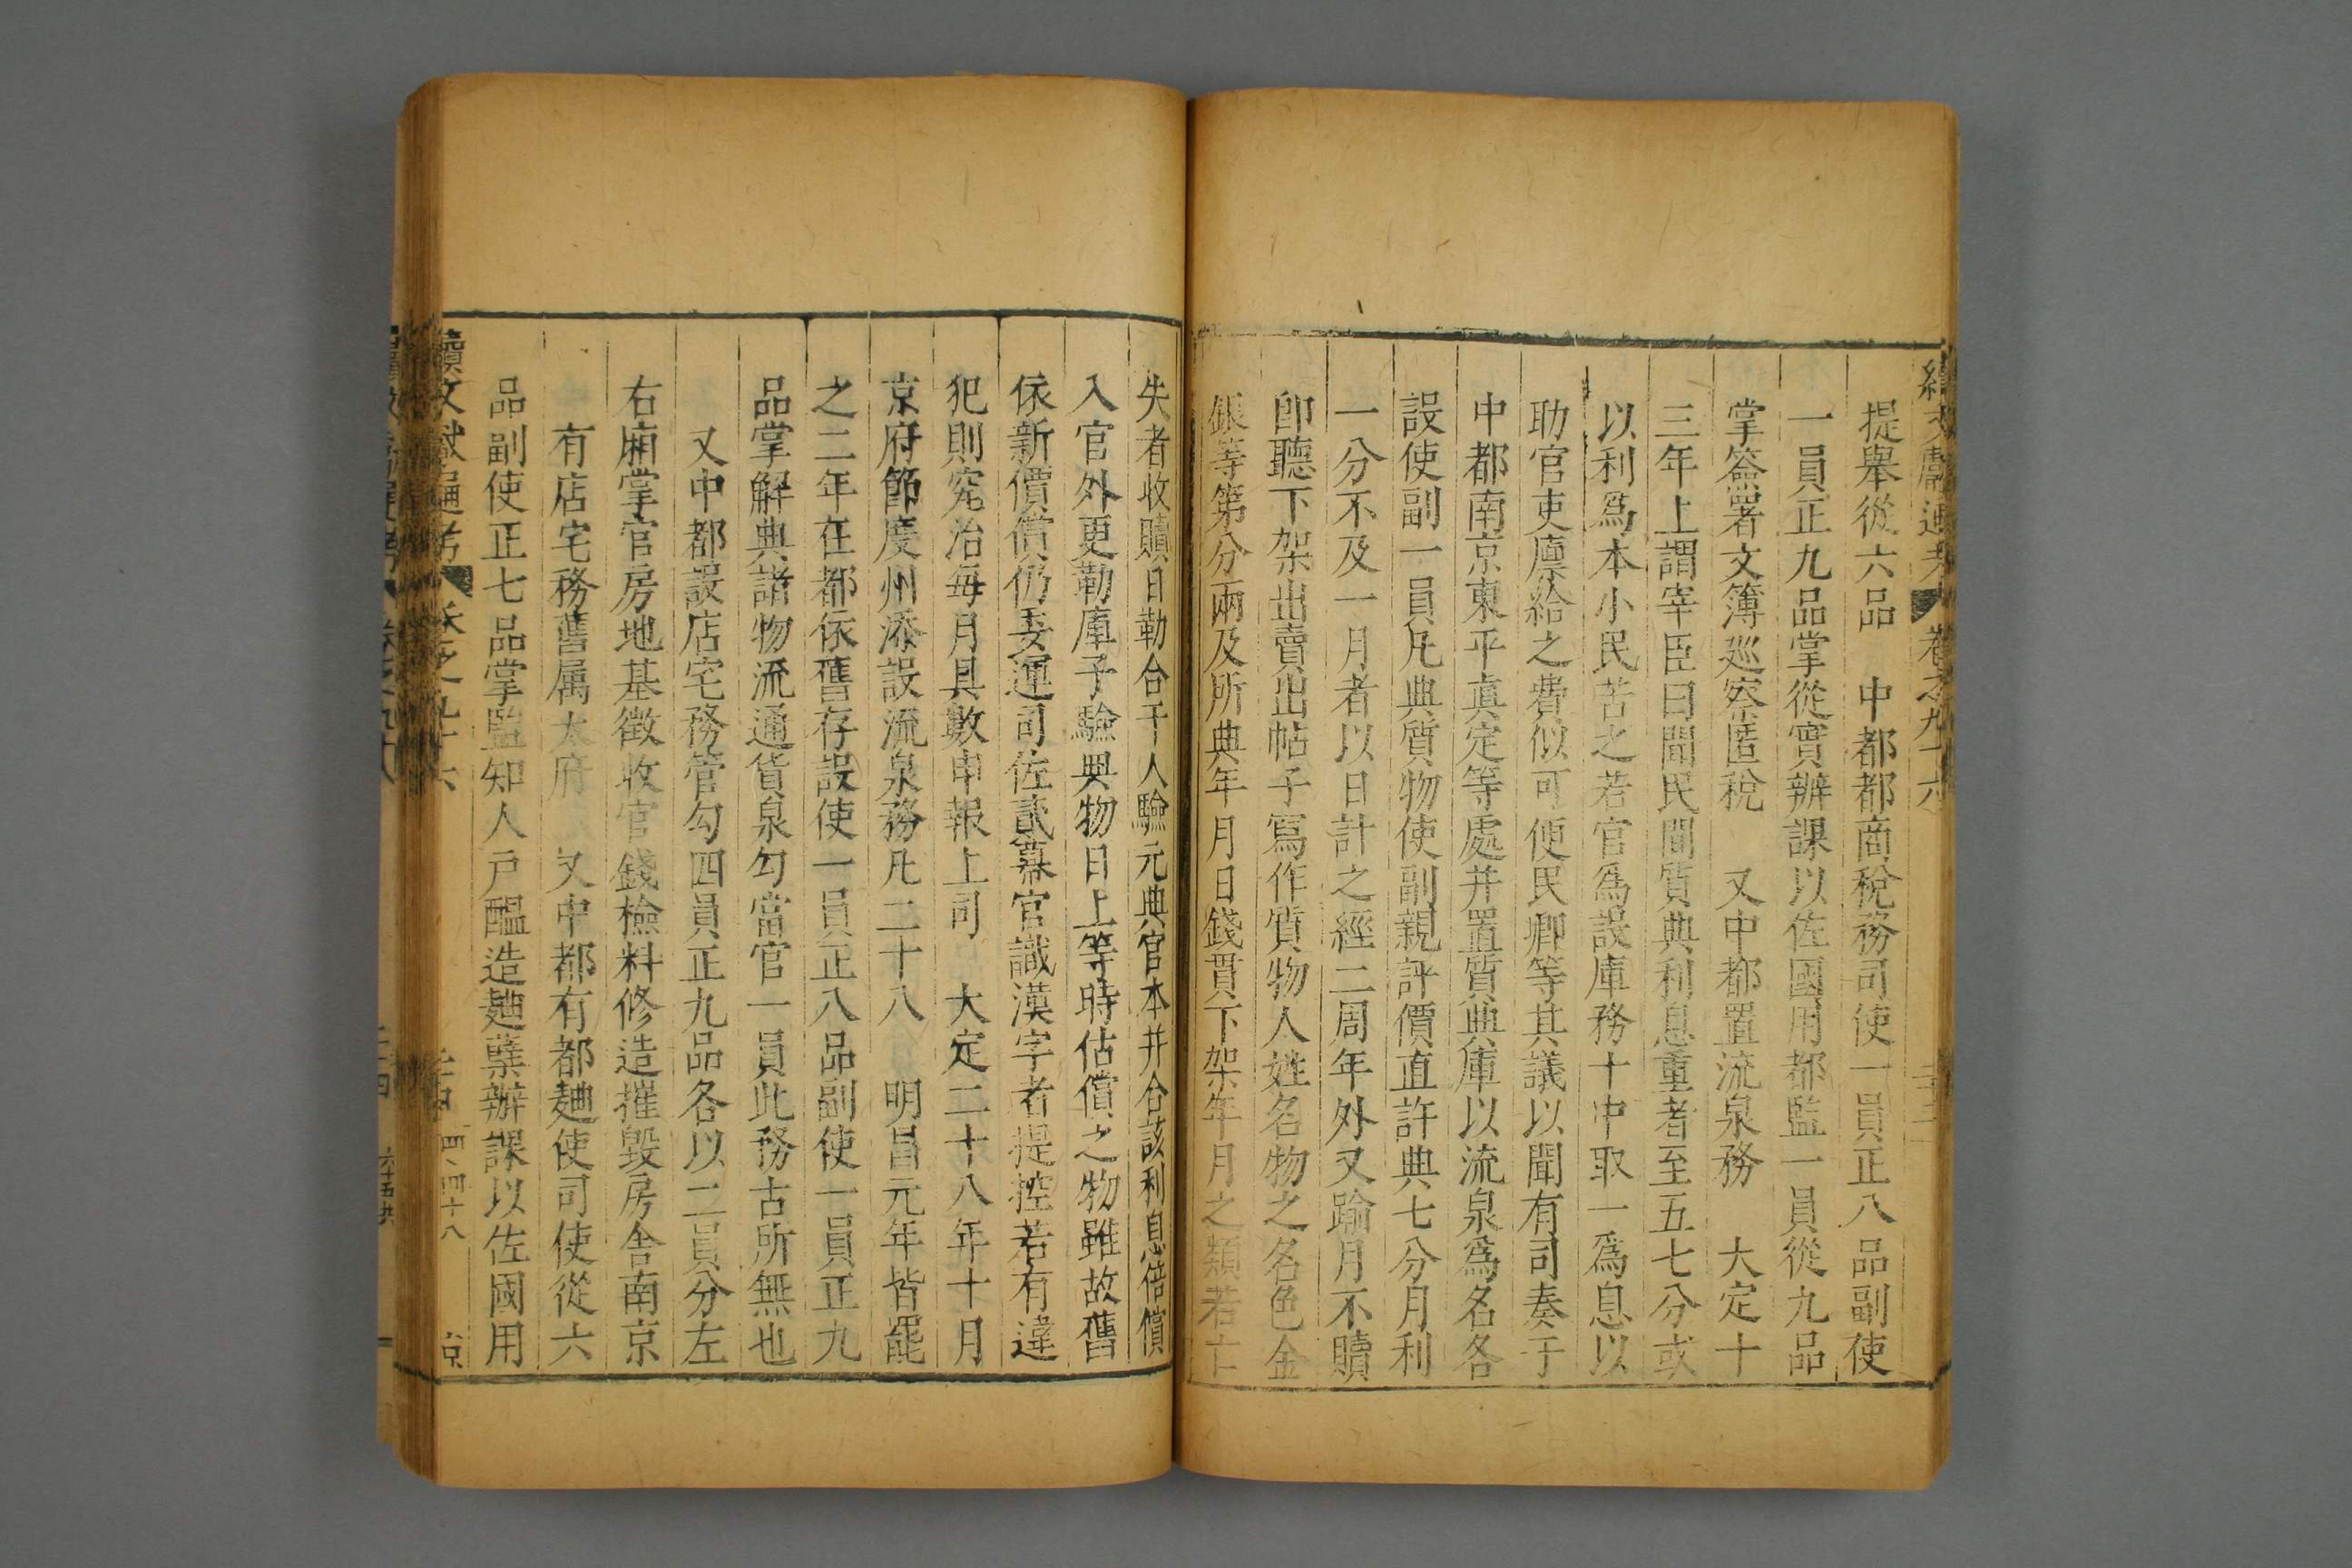 續文獻通考 卷之九十六 三十三
提舉從六品　中都都商稅務司使一員正八品副使
一員正九品掌從實辦課以佐國用都監一員從九品
掌簽署文簿巡察匿稅　又中都置流泉務　大定十
三年上謂宰臣曰聞民間質典利息重者至五七分或
以利爲本小民苦之若官爲設庫務十中取一爲息以
助官吏廪給之費似可便民卿等其議以聞有司奏于
中都南京東平真定等處并置質典庫以流泉爲名各
設使副一員凡典質物使副親評價直許典七分月利
一分不及一月者以日計之經二周年外又踰月不贖
卽聽下架出賣出帖子寫作質物人姓名物之名色金
銀等第分兩及所典年月日錢貫下架年月之類若亡
失者收贖日勒合干人驗元典官本并合該利息倍償
入官外更勒庫子驗典物日上等時估償之物雖故舊
依新價償仍委運司佐貳幕官識漢字者提控若有違
犯則究治每月具數申報上司　大定二十八年十月
京府節度州添設流泉務凡二十八　明昌元年皆罷
之二年在都依舊存設使一員正八品副使一員正九
品掌解典諸物流通貨泉勾當官一員此務古所無也
又中都設店宅務管勾四員正九品各以二員分左
右廂掌官房地基徵收官錢檢料修造摧毀房舍南京
有店宅務舊属太府　又中都有都麯使司使從六
品副使正七品掌監知人戶醞造麯糵辦課以佐國用
續文獻通考 卷之九十六 三十四 四、四十八